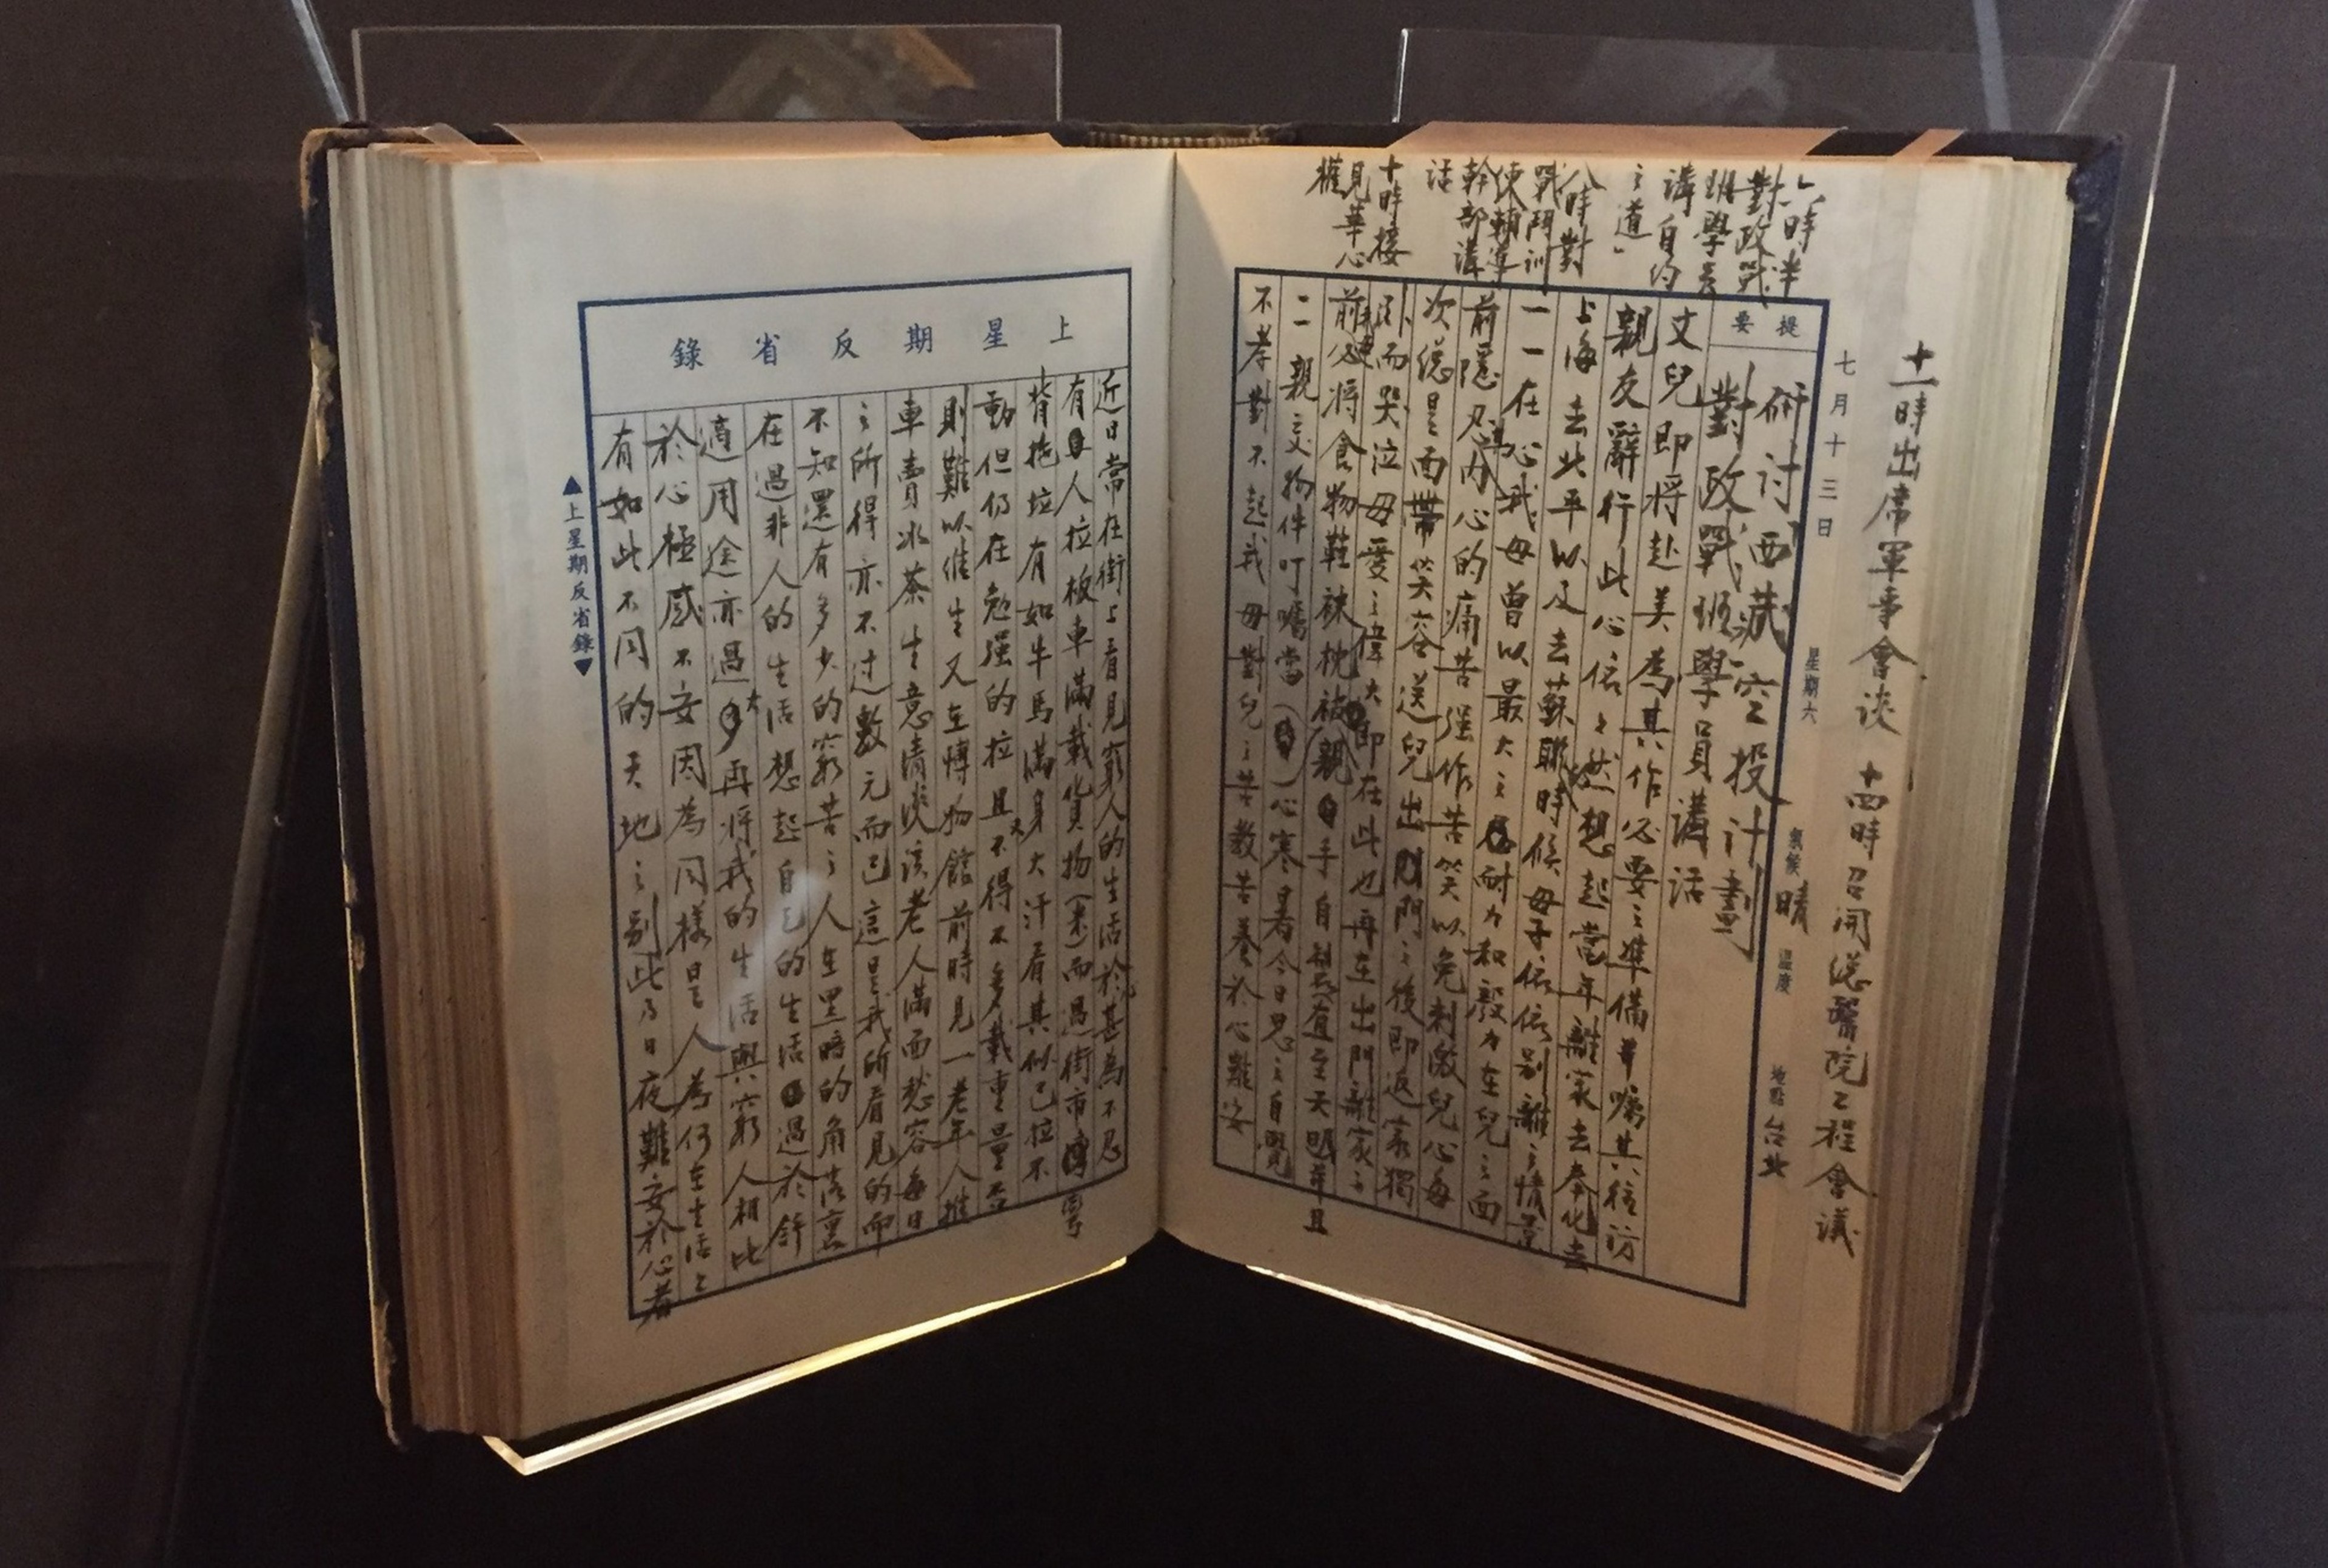 十一時出席軍事會談 十四時召開總醫院工程會議
七月十三日 星期六 氣候 晴 溫度 地點 台北
六時半
對政戰
班學員
講自約
之道」
八時對
戰鬥訓
練輔導
幹部講
話
十時接
見華心
權
提要
研討西藏空投計劃
對政戰班學員講話
文兒即將赴美為其作必要之準備並囑其往訪
親友辭行此心依々然想起當年離家去奉化去
上海去北平以及去蘇聯時候母子依依別離之情景
一一在心我母曾以最大之忍耐力和毅力在兒之面
前隱忍其內心的痛苦強作苦笑以免刺激兒心每
次總是面帶笑容送兒出門之後即返家獨
臥而哭泣母愛之偉大即在此也再在出門離家之
前必將食物鞋襪枕被親手自製直至天明並且
二親交物件叮囑當心寒暑今日思之自覺
不孝對不起我母對兒之苦教苦養於心難安
上星期反省錄
近日常在街上看見窮人的生活於甚為不忍
有人拉板車滿載貨物(米)而過街市
背拖垃有如牛馬滿身大汗看其似已拉不
動但仍在勉強的拉且又不得不多載重量否
則難以維生又在博物館前時見一老年人推
車賣冰茶生意清淡該老人滿面愁容每日
之所得亦不过數元而已這是我所看見的而
不知還有多少的窮苦之人在黑暗的角落裏
在過非人的生活想起自己的生活過於舒
適用途亦過大再將我的生活與窮人相比
於心極感不安因為同樣是人為何在生活上
有如此不同的天地之別此乃日夜難安於心者
▲上星期反省錄▼